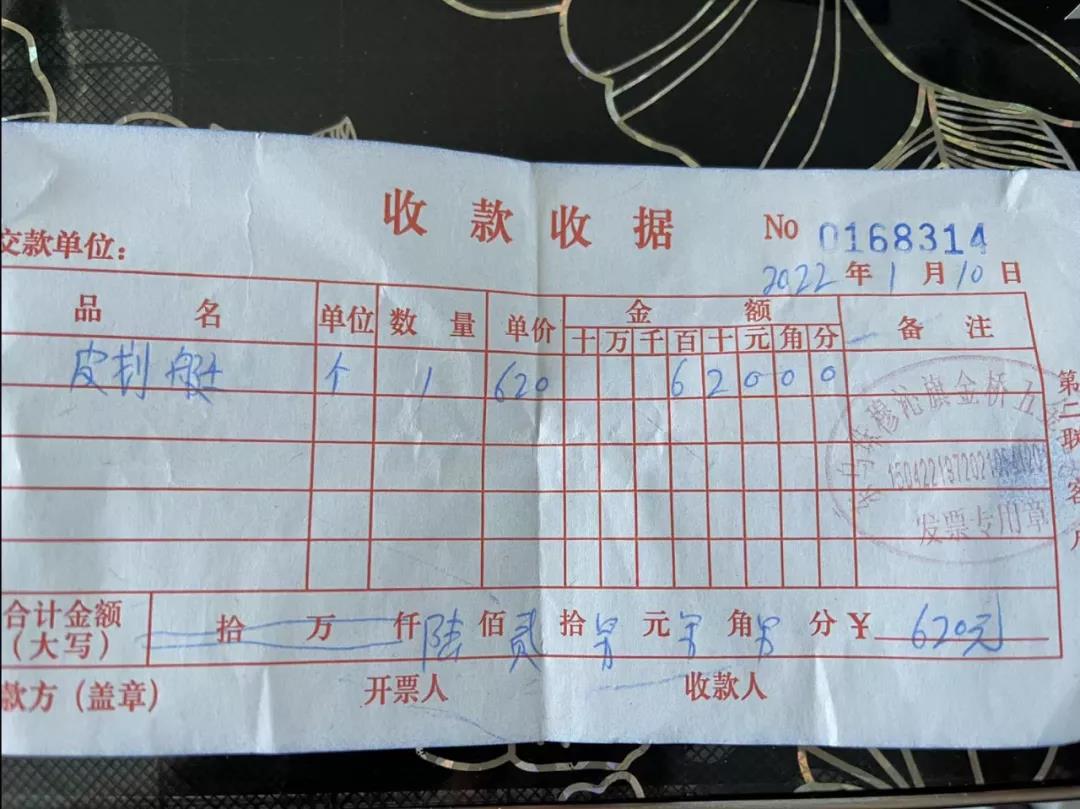 收款收据 No 0168314
交款单位：
2022年1月10日
品名 单位 数量 单价 金额 备注
十 万 千 百 十 元 角 分
皮划艇 个 1 620 6 2 0 0 0
穆沁旗金桥五
发票专用章
第二联
客户
合计金额（大写） 拾 万 仟 陆 佰 贰 拾 另 元 另 角 另 分 ¥ 620元
款方（盖章） 开票人 收款人